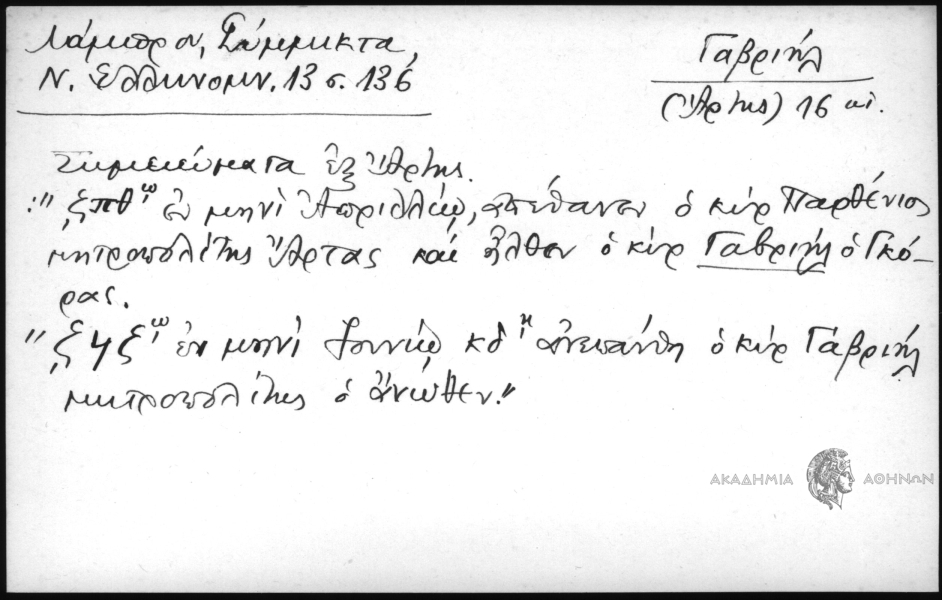 Λάμπρου, Σύμμικτα,
Ν. Ἑλληνομν. 13 σ. 136
Γαβριήλ
(Ἄρτης) 16 αἰ.
Σημειώματα ἐξ Ἄρτης.
:"͵ζπθῳ ἐν μηνὶ Ἀπριλλίῳ, ἀπέθανεν ὁ κὺρ Παρθένιος
μητροπολίτης Ἄρτας καὶ ἦλθεν ὁ κὺρ Γαβριήλ ὁ Γκό-
ρας.
"͵ζϟξῳ ἐν μηνὶ Ἰουνίῳ κδῃ ἀνεπαύθη ὁ κὺρ Γαβριήλ
μητροπολίτης ὁ ἄνωθεν."
ΑΚΑΔΗΜΙΑ ΑΘΗΝΩΝ